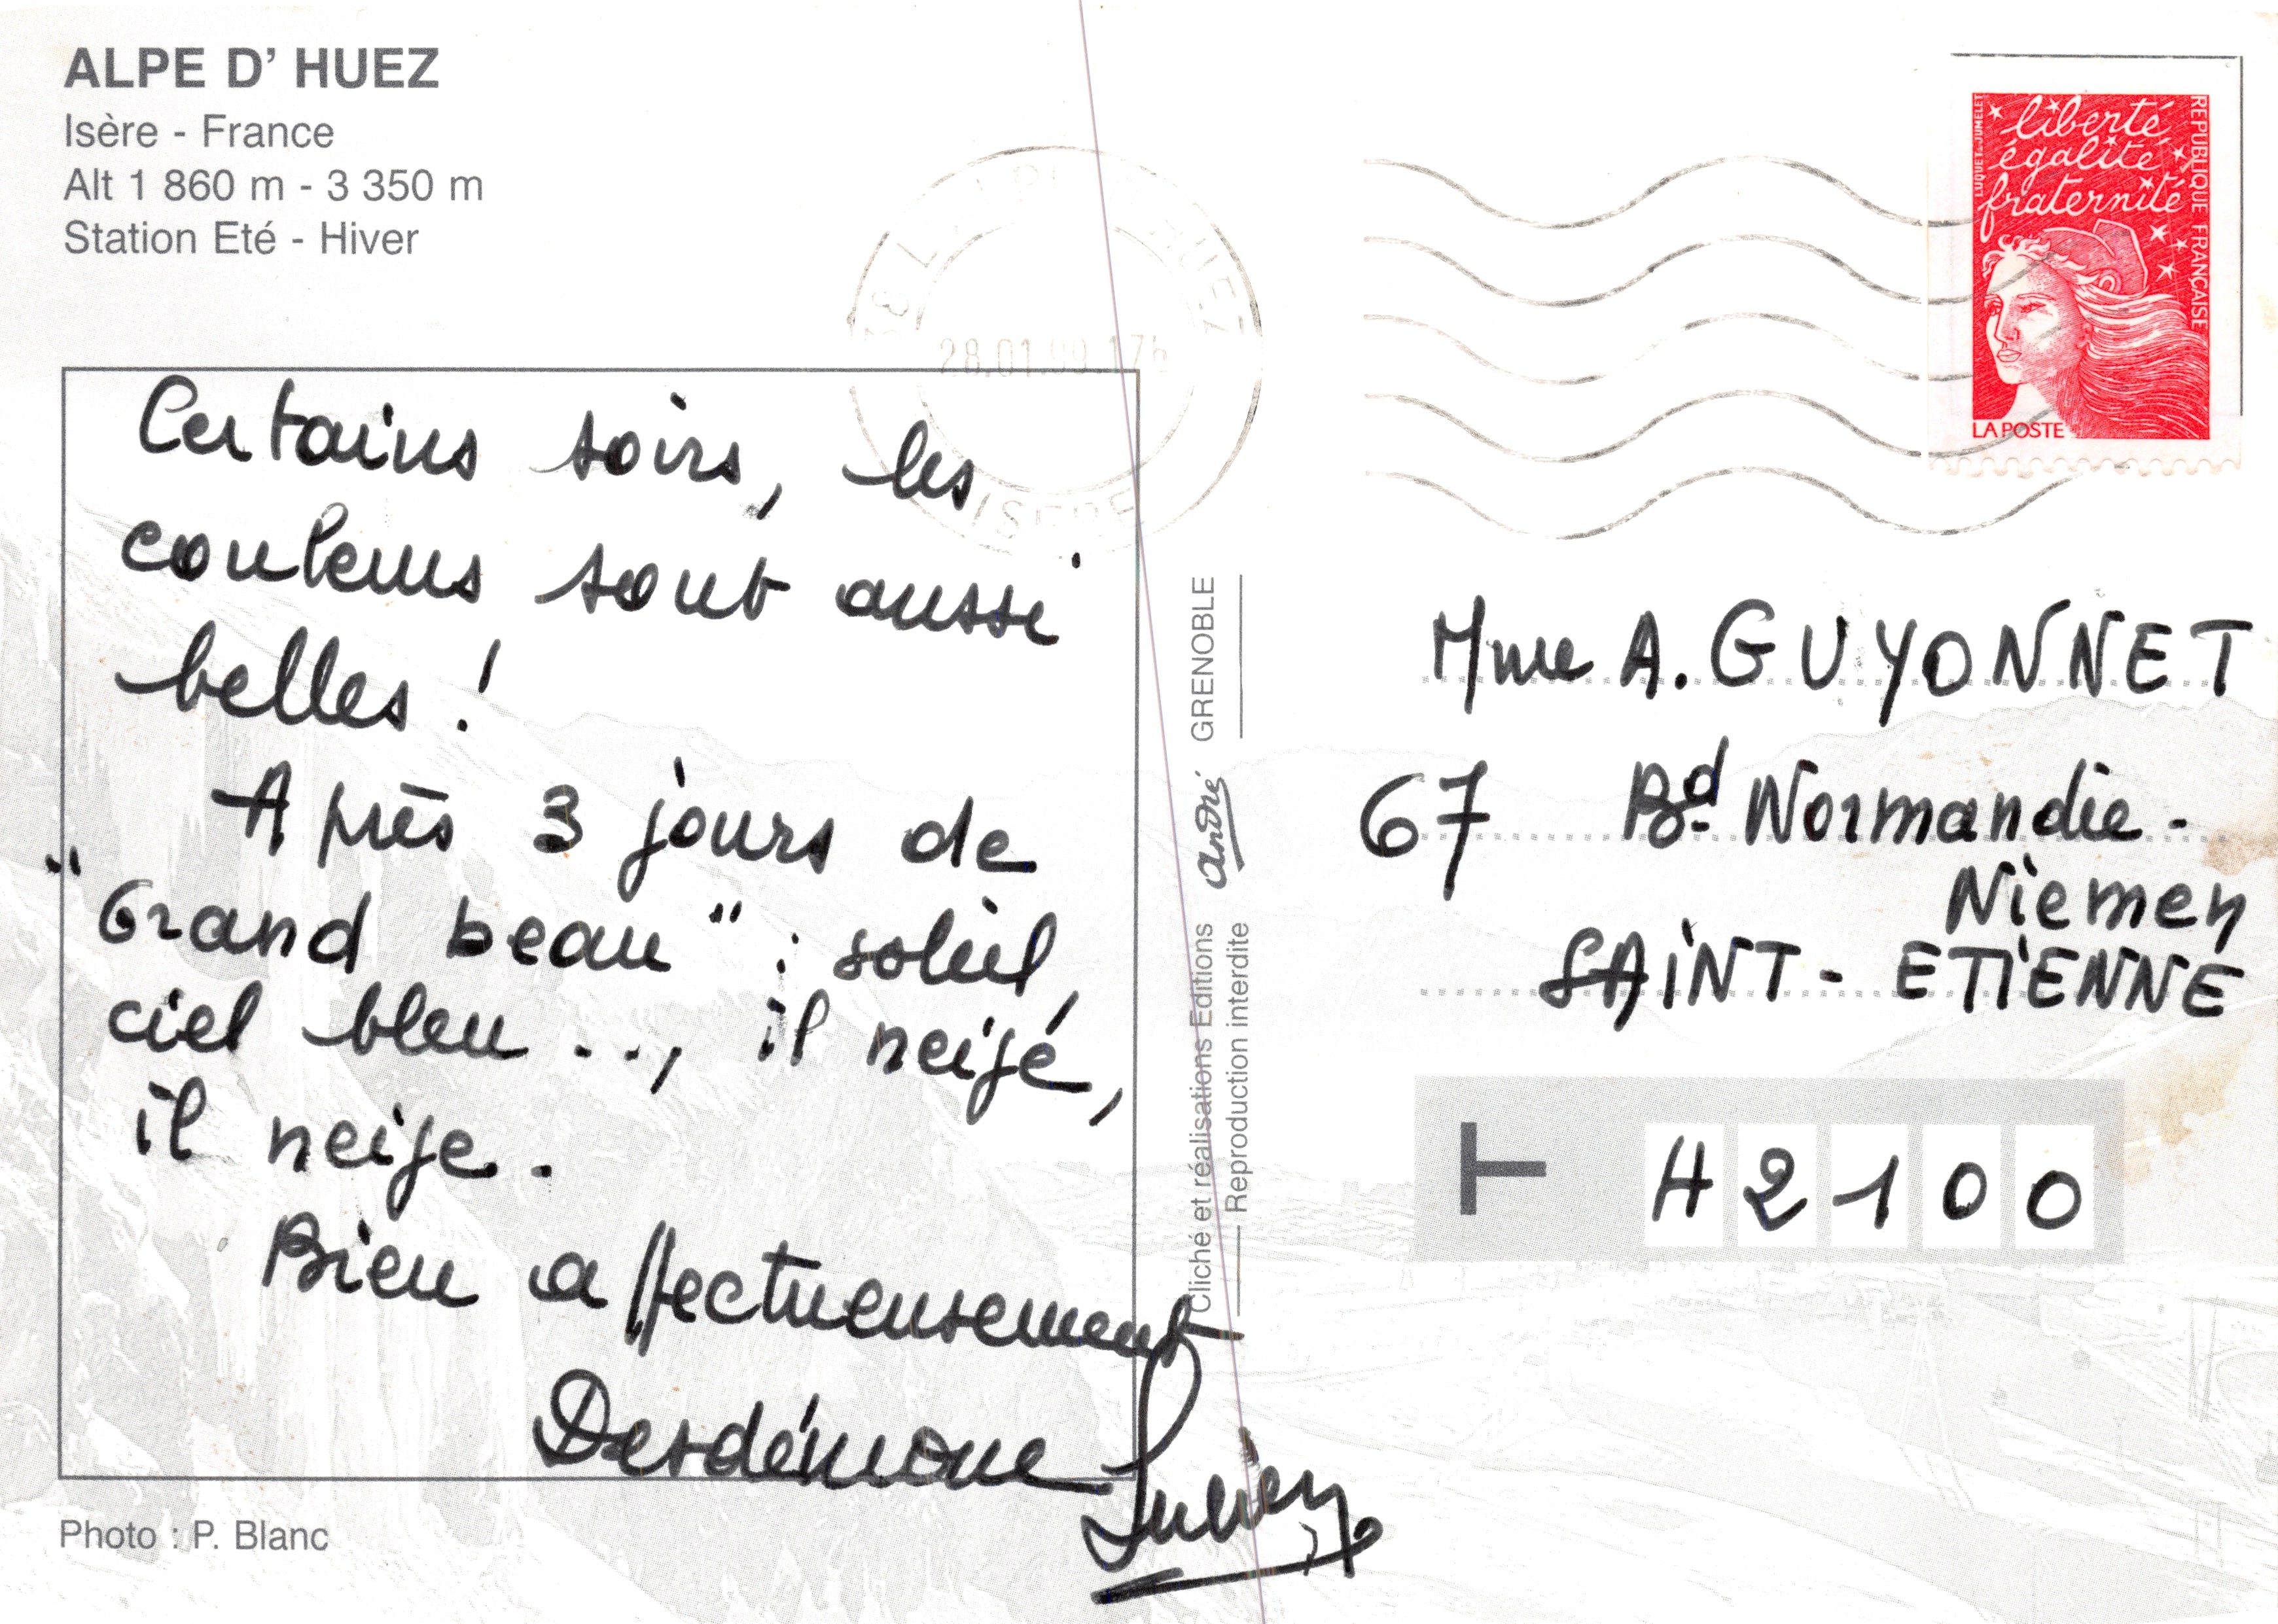 ALPE D' HUEZ
Isère - France
Alt 1 860 m - 3 350 m
Station Eté - Hiver
28.01.99
ISERE
liberté
égalité
fraternité
REPUBLIQUE FRANÇAISE
LUQUET-JUMELET
LA POSTE
Certains soirs, les
couleurs sont aussi
belles !
Après 3 jours de
"Grand beau" : soleil,
ciel bleu..., il neige,
il neige.
Bien affectueusement
Desdémone
Photo : P. Blanc
Cliché et réalisations Editions andré GRENOBLE
Reproduction interdite
Mme A. GUYONNET
67 Bd Normandie-
Niemen
SAINT-ETIENNE
T 42100